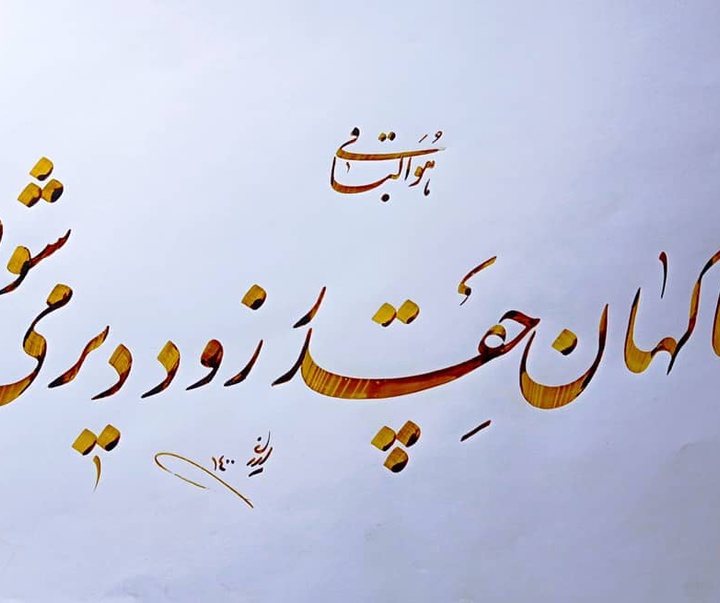 هُوَ الباقی
ناگهان چِقَدَر زود دیر می شود
۱۴۰۰